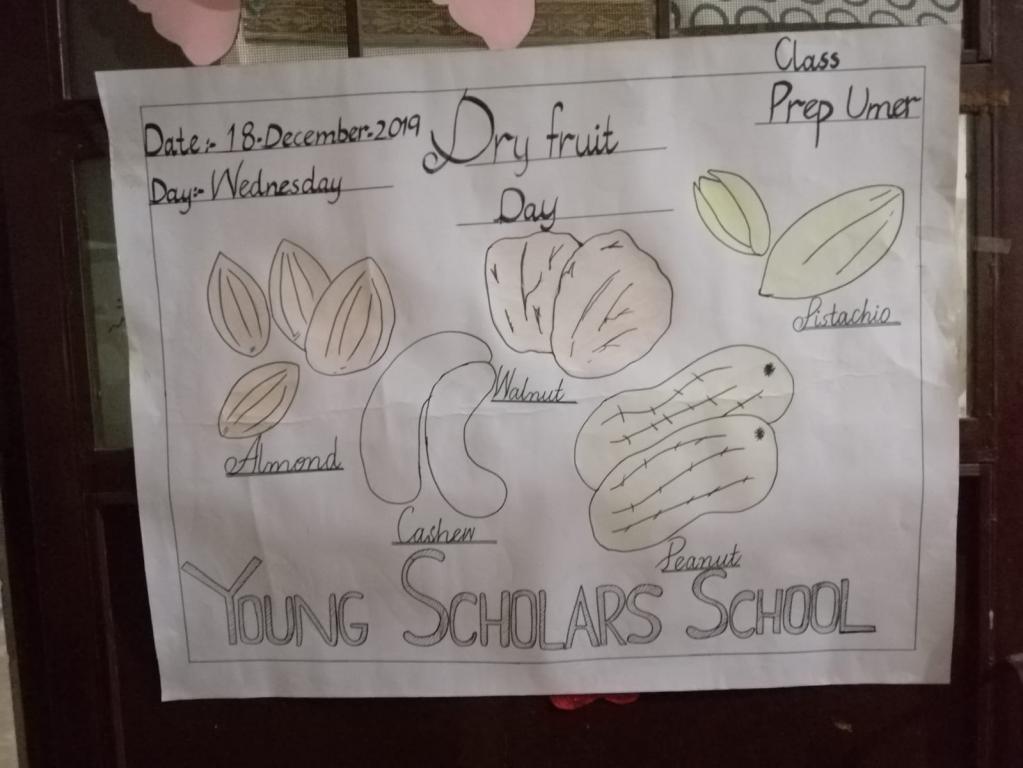 Class
Prep Umer
Date:- 18-December-2019
Dry fruit
Day:- Wednesday
Day
Pistachio
Walnut
Almond
Cashew
Peanut
YOUNG SCHOLARS SCHOOL